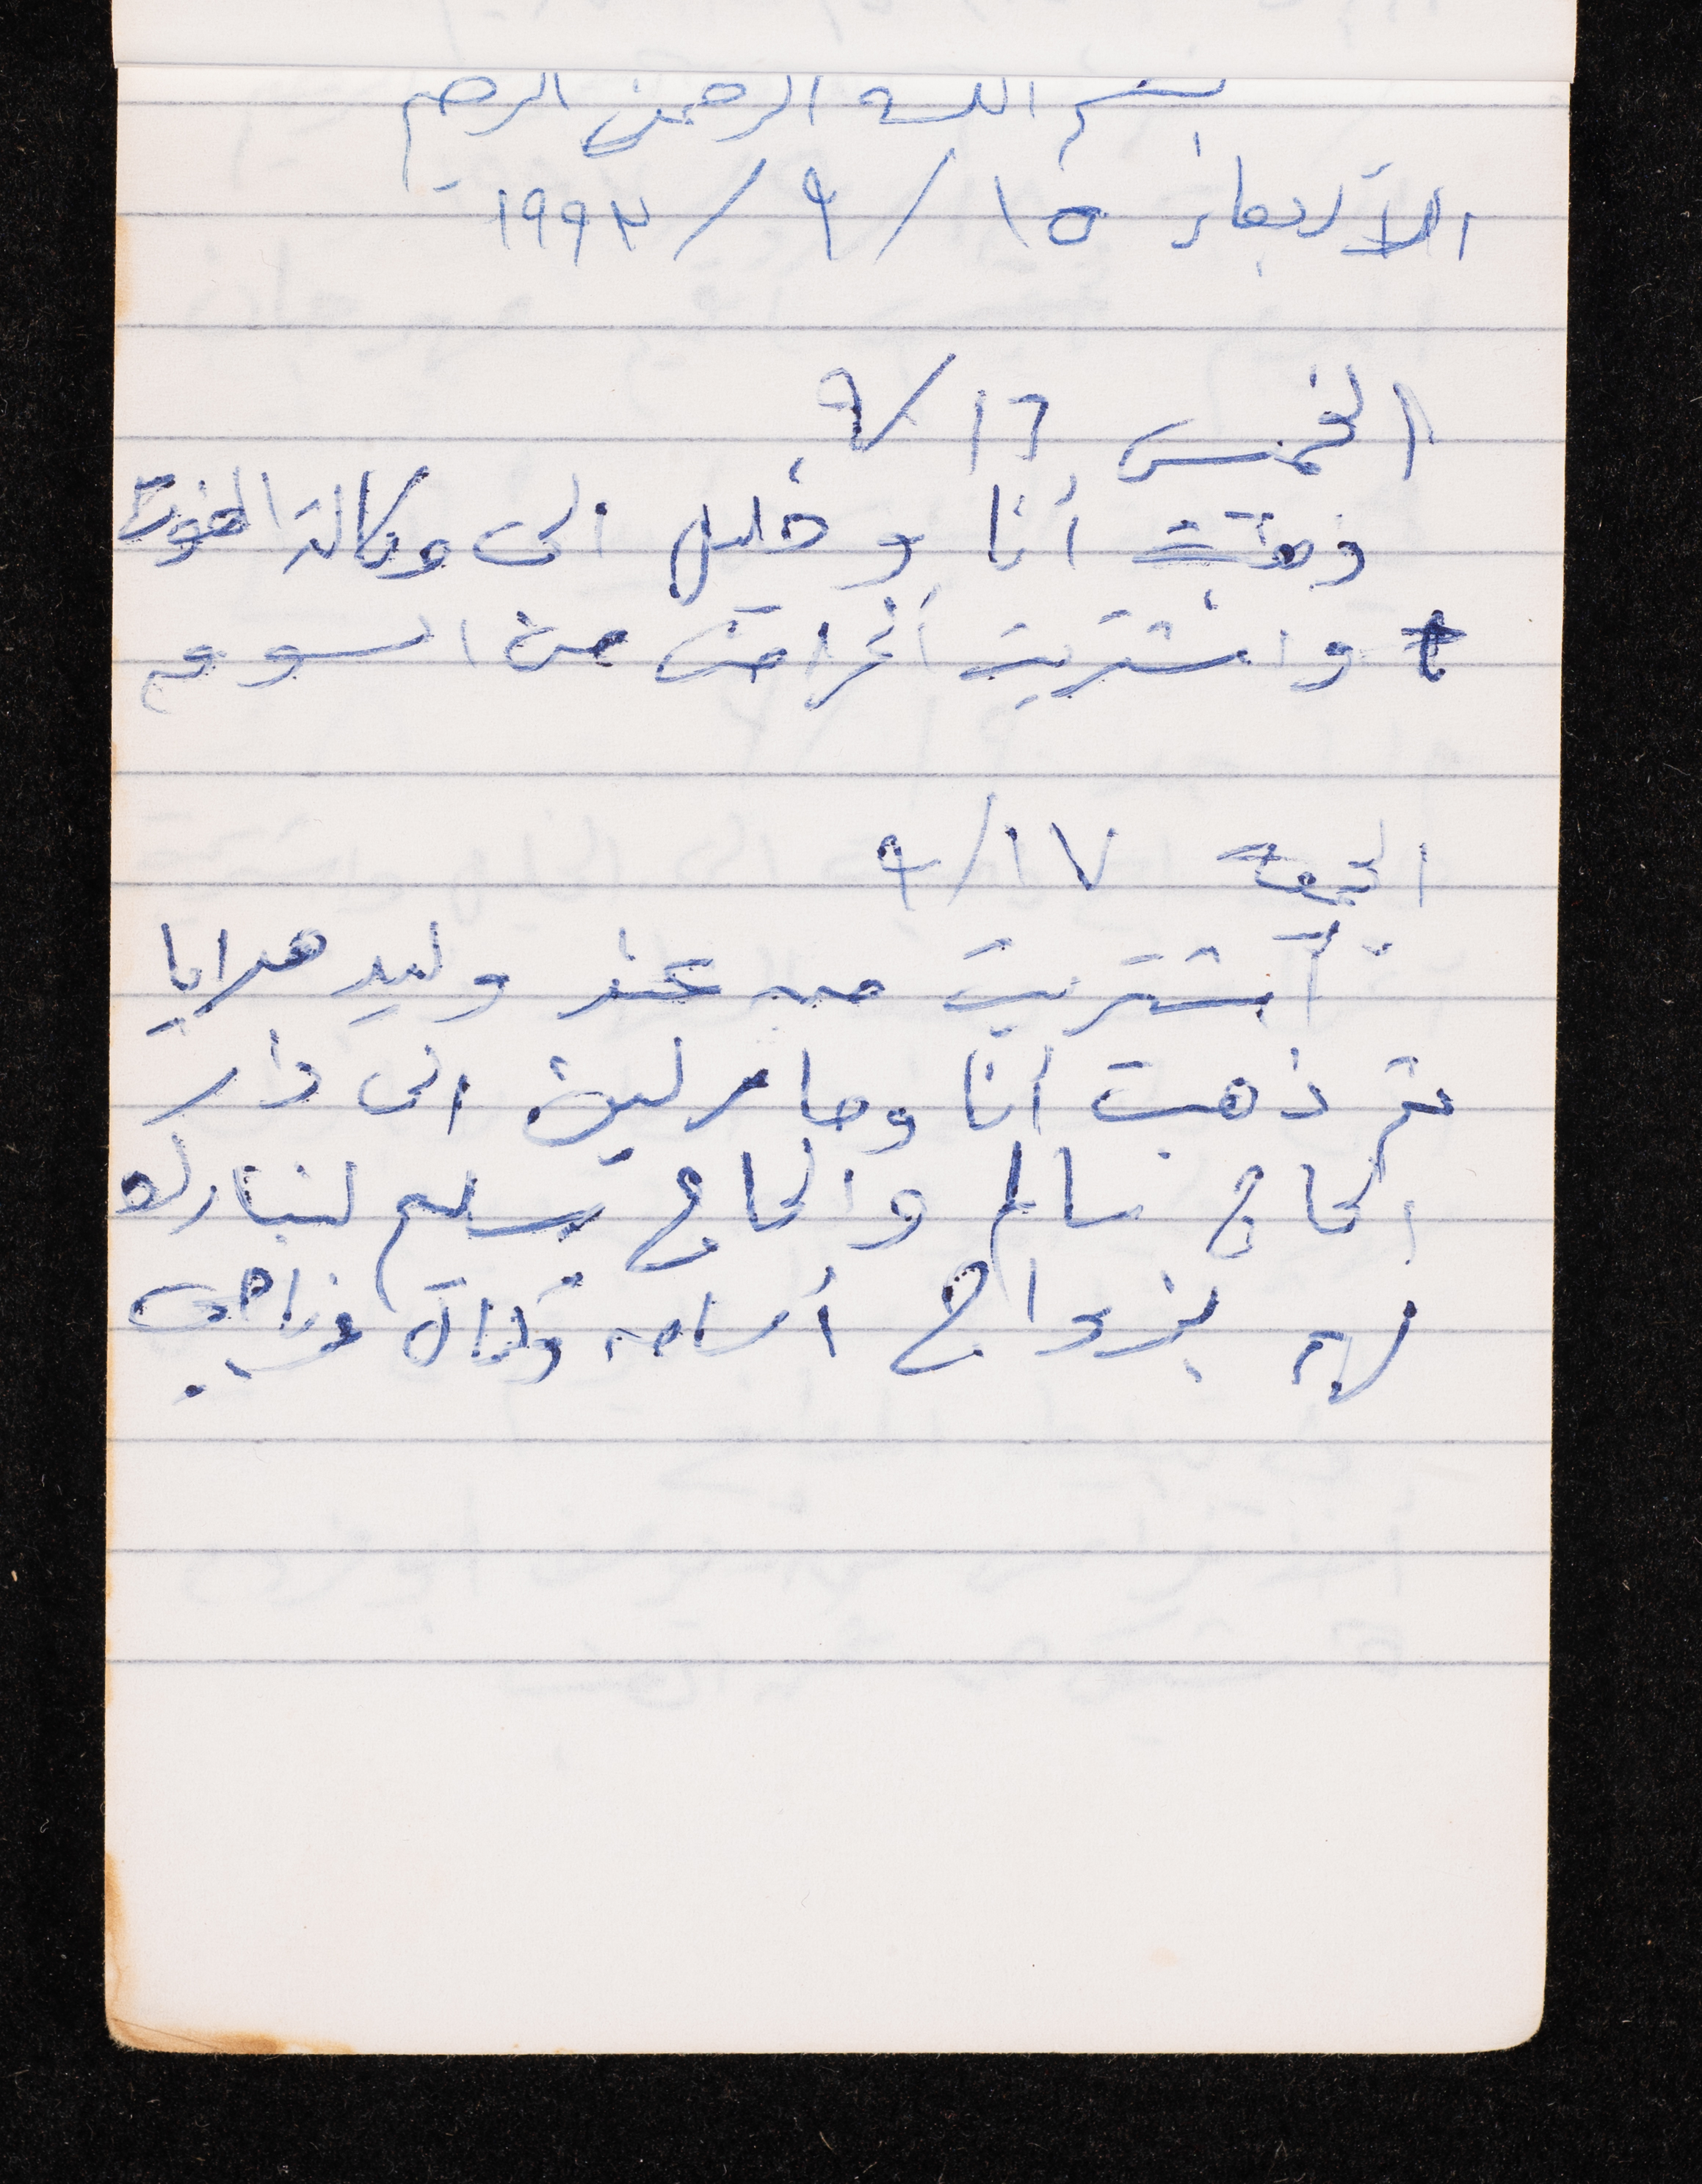 بسم الله الرحمن الرحيم
الأربعاء ١٥ / ٩ / ١٩٩٣
الخميس ١٦ / ٩
ذهبت أنا و خليل الى وكالة الغوث
واشتريت أغراض من السوق
الجمعة ١٧ / ٩
اشتريت من عند وليد هدايا
ثم ذهبت أنا وجا مرلين الى دار
الحاج سالم والحاج سليم لنبارك
لهم بزواج أسامه وكمال